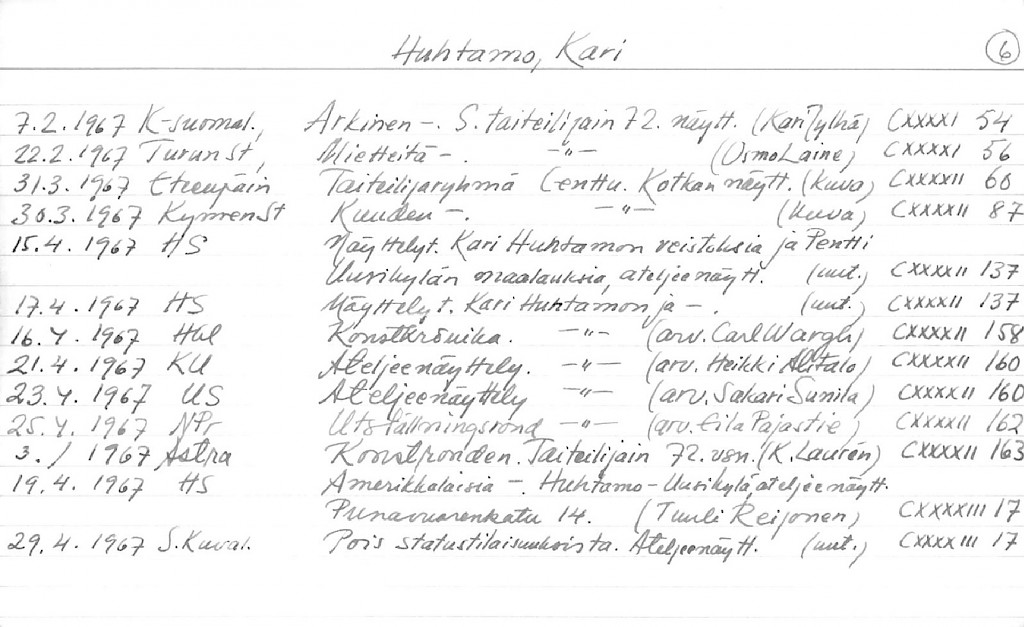 Huhtamo, Kari 6
7.2.1967 K-suomal., Arkinen -. S. taiteilijain 72. näytt. (Kari Jylhä) CXXXXI 54
22.2.1967 TurunSt, Mietteitä -. -"- (Osmo Laine) CXXXXI 56
31.3.1967 Eteenpäin Taiteilijaryhmä Centtu. Kotkan näytt. (kuva) CXXXXII 60
30.3.1967 KymenSt Kuuden -. -"- (kuva) CXXXXII 87
15.4.1967 HS Näyttelyt. Kari Huhtamon veistoksia ja Pentti
Uusikylän maalauksia, ateljeenäytt. (uut.) CXXXXII 137
17.4.1967 HS Näyttelyt. Kari Huhtamon ja -. (uut.) CXXXXII 137
16.4.1967 Hbl Konstkrönika. -"- (arv. Carl Wargh) CXXXXII 158
21.4.1967 KU Ateljeenäyttely. -"- (arv. Heikki Alitalo) CXXXXII 160
23.4.1967 US Ateljeenäyttely -"- (arv. Sakari Sunila) CXXXXII 160
25.4.1967 NPr Utställningsrond -"- (arv. Eila Pajastie) CXXXXII 162
3./1967 Astra Konstronden. Taiteilijain 72. vsn. (K. Laurén) CXXXXII 163
19.4.1967 HS Amerikkalaisia -. Huhtamo-Uusikylä, ateljeenäytt.
Punavuorenkatu 14. (Tuuli Reijonen) CXXXXIII 17
29.4.1967 S.Kuval. Pois statustilaisuuksista. Ateljeenäytt. (uut.) CXXXXIII 17